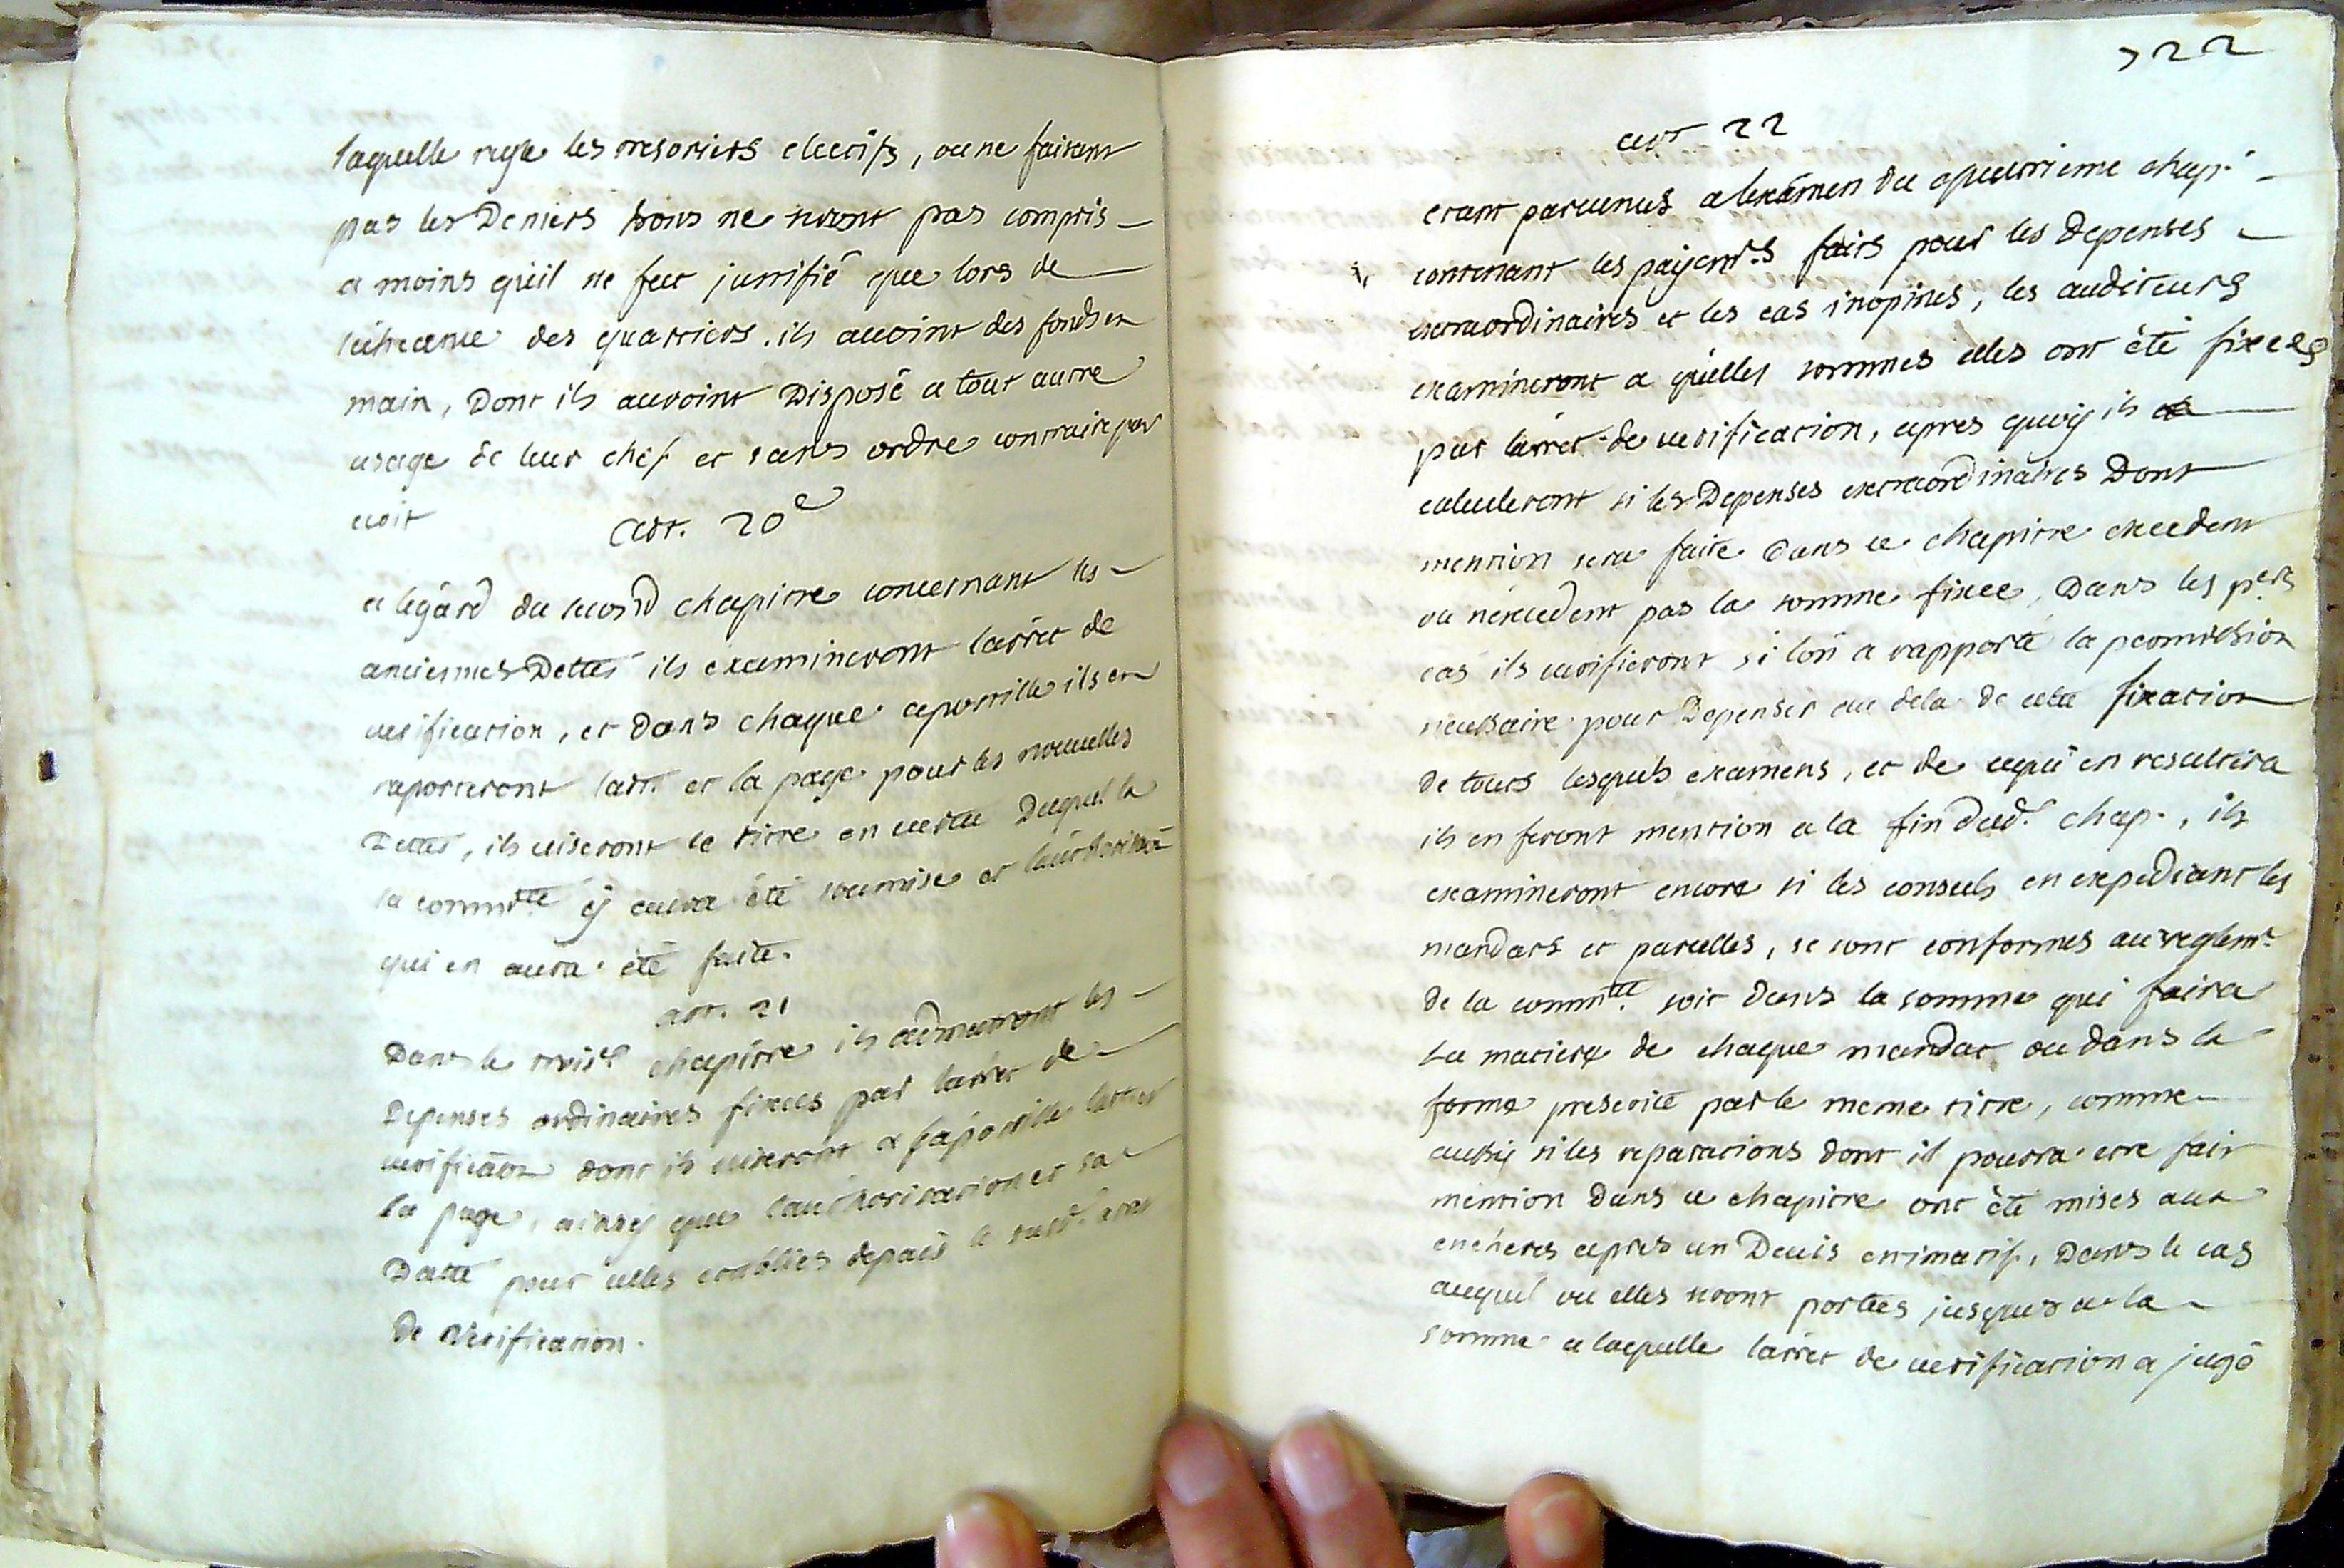 laquelle regle les tresoriers electifs, ou ne faisant
pas les Deniers bons ne seront pas compris
a moins qu'il ne fut justifié que lors de
léchéance des quartiers, ils avoint des fonds en
main, Dont ils auroint Disposé a tout autre
usage de leur chef et sans ordre contraire par
ecrit
art. 20e
a légard du second chapitre concernant les
anciennes Dettes ils examineront larrêt de
verification, et dans chaque apostille ils en
raporteront lart. et la page. pour les nouvelles
Dettes, ils viseront le titre en vertu Duquel la
la commté y aura été soumise et
qui en aura été faite.
art. 21
Dans le troise chapitre ils admettront les
Depenses ordinaires fixées par larret de
verification dont ils viseront a lapostille
la page, ainsy que lauthorisation et sa
Datte pour celles etablies depuis le susd. arret
de verification.
722
art 22
etant parvenus a lexâmen du quatrieme chap.
contenant les payemts faits pour les depenses
extraordinaires et les cas inopinés, les auditeurs
examineront a quelles sommes elles ont été fixees
par larret de verification, apres quoy ils
calculeront si les Depenses extraordinaires Dont
mention sera faite dans ce chapitre excedent
ou n'excedent pas la somme fixée, Dans les pers
cas ils verifieront si lon a rapporté la permission
necessaire pour Depenser au dela de cette fixation
de touts lesquels examens, et de cequi en resultera
ils en feront mention a la fin dud. chap., ils
examineront encore si les consuls en expediant les
mandats et parcelles, se sont conformes au reglemt
de la commté. soit dans la somme qui faira
La matiere de chaque mandat ou dans la
forme prescrite par le meme titre, comme
aussy si les reparations dont il pourra etre fait
mention dans ce chapitre ont été mises aux
encheres apres un Devis estimatif, Dans le cas
auquel ou elles seront portées jusques a la
somme a laquelle larret de verification a jugé